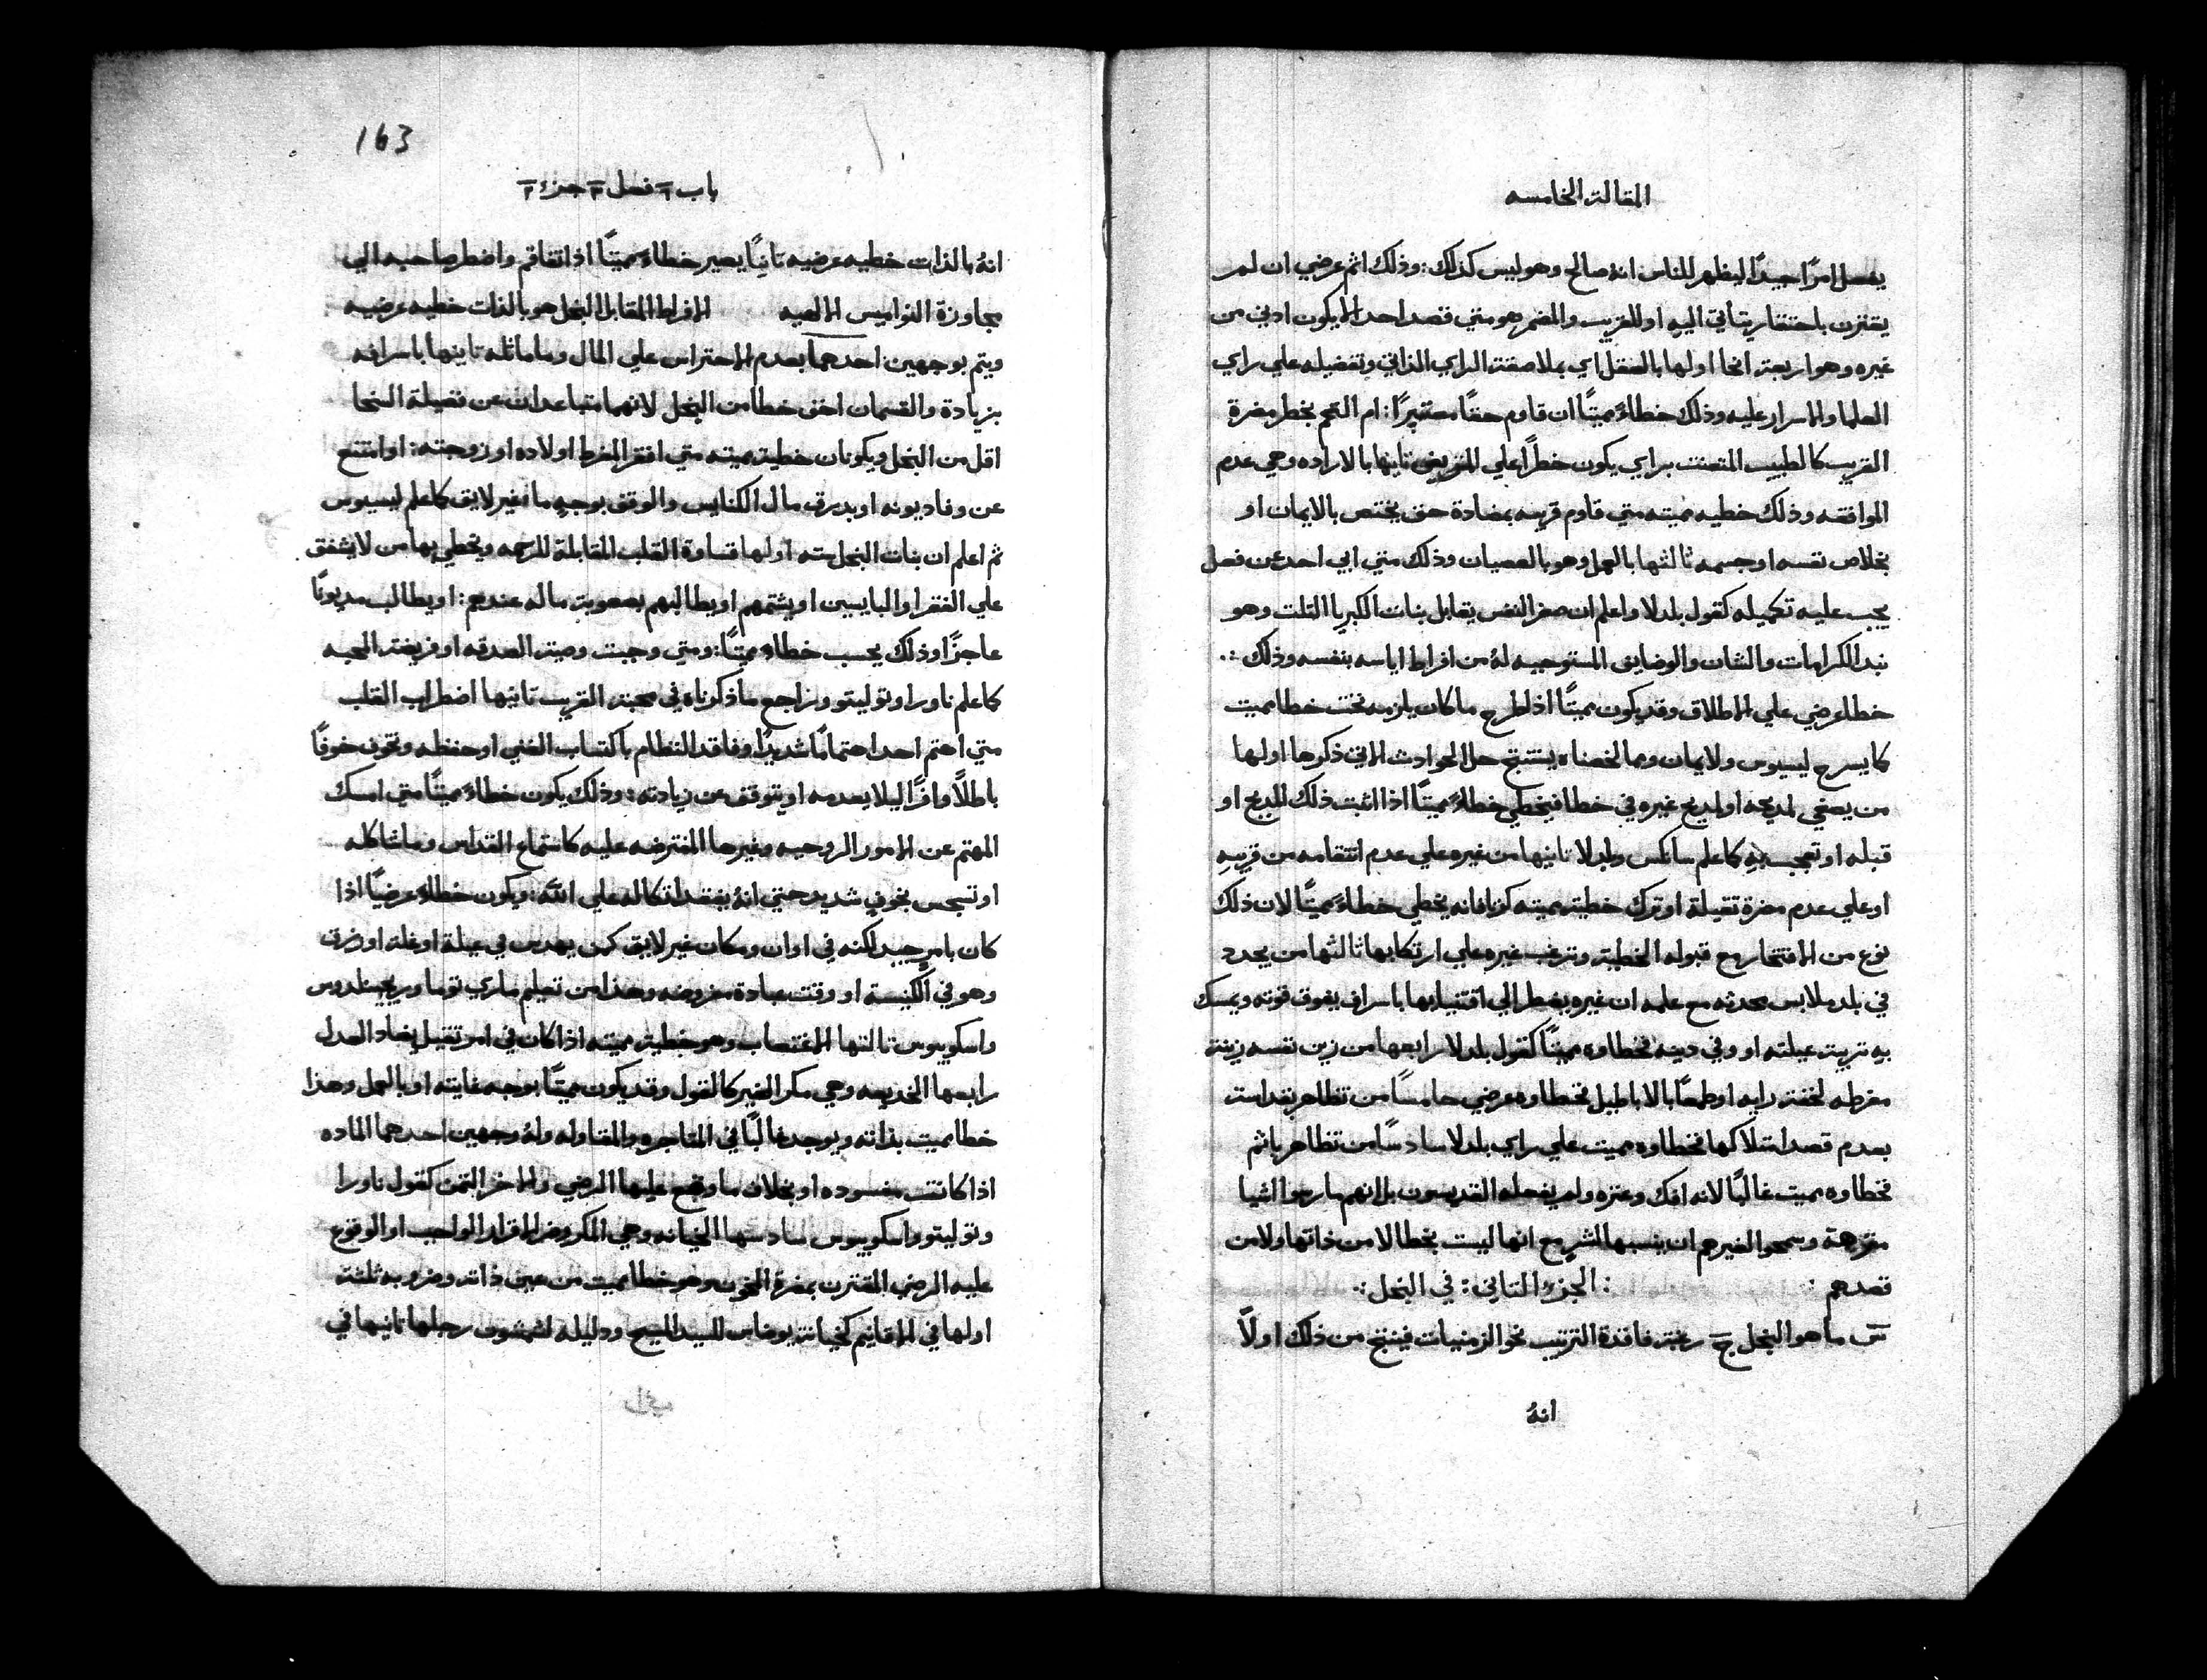 المقالة الخامسه
يفعل امرًا جيدًا ليظهر للناس انه صالح وهو ليس كذلك: وذلك اثم عرضي ان لم
يقترن باحتقار يتأتي اليه او للقريب والمضر هو متي قصد احد الا يكون ادني من
غيره وهو اربعة انحا اولها بالعقل اي بملاصقة الراي الذاتي وتفضيله علي راي
العلما والاسرار عليه وذلك خطاء مميتًا ان قاوم حقًا معتبرًا: ام التحم بخطر مضرة
القريب كالطبيب المتعنت براي يكون خطرًا علي المريض ثانيها بالاراده وهي عدم
الموافقه وذلك خطيه مميته متي قاوم قريبه بمضادة حق يختص بالايمان او
بخلاص نفسه او جسمه ثالثها بالعمل وهو بالعصيان وذلك متي ابي احد عن فعل
يجب عليه تكميله كقول بلدلا واعلم ان صغر النفس يقابل بنات الكبريا الثلث وهو
نبد الكرامات والشان والوضايق المستوجبه لهُ من افراط اياسه بنفسه وذلك :.
خطا عرضي علي الاطلاق وقد يكون مميتًا اذا طرح ما كان يلزمه تحت خطا مميت
كما يسرح ليسيوس ولايمان ومما لخصناه يستنتج حل الحوادث الاتي ذكرها اولها
من يصغي لمديحه او لمديح غيره في خطا فيخطي خطاءً مميتًا اذا اثبت ذلك المديح او
قبله او تعجب به كما علم سانكس وبلدلا ثانيها من غيره علي عدم انتقامه من قريبه
او علي عدم مضرة ثقيلة او ترك خطية مميته كزنا فانه يخطي خطاءً مميتًا لان ذلك
نوع من الافتخار مع قبوله الخطية وترغب غيره علي ارتكابها ثالثها من يجدد
في بلد ملابس محدثه مع علمه ان غيره يضطر الي اقتنيابها باسراف يفوق قوته ويمسك
به تربية عيلته او وفي دينه فخطاوه مميتًا كقول بلدلا رابعها من زين نفسه زينة
مفرطه لخفة رايه او طمعًا بالاباطيل فخطاوه عرضي خامسًا من تظاهر بقداسة
بعدم قصد امتلاكها فخطاوه مميت علي راي بلدلا سادسًا من تظاهر باثم
فخطاوه مميت غالبًا لانه افك وعثره ولم يفعله القديسون بل انهم مارسوا اشيا
منزهة وسمحوا لغيرهم ان ينسبها لشر مع انها ليست بخطا لا من ذاتها ولا من
قصدهم : : الجزء الثاني: في البخل :.
س ما هو البخل ج رغبة فاقدة الترتيب نحو الزمنيات فينتج من ذلك اولاً
انهُ
163
باب ٦ فصل ٣ جزء ٢
انهُ بالذات خطيه عرضيه ثانيًا يصير خطاء مميتًا اذا تفاقم واضطر صاحبه الي
مجاوزة النواميس الالهيه الافراط المقابل البخل هو بالذات خطيه عرضيه
ويتم بوجهين احدهما بعدم الاحتراس علي المال وما ماثله ثانيها باسرافه
بزيادة والقسمان اخف خطا من البخل لانهما متباعدان عن فضيلة السخا
اقل من البخل ويكونان خطية مميته متي افقر المفرط اولاده او زوجته: او امتنع
عن وفا ديونه او بدرق مال الكنايس والوقف بوجهٍ ما غير لايق كما علم ليسيوس
ثم اعلم ان بنات البخل سته اولها قساوة القلب المقابلة للرحمه ويخطي بها من لا يشفق
علي الفقرا والبايسين او يشتمهم او يطالبهم بصعوبة ماله عندهم: او يطالب مديونًا
عاجزًا وذلك يحسب خطاء مميتًا: ومتي وجبت وصية الصدقه او فريضة المحبه
كما علم ناورا وتوليتو ونراجع ما ذكرناه في محبة القريب ثانيها اضطراب القلب
متي اهتم احد اهتمامًا شديدًا وفاقد النظام باكتساب الغني او حفظه وتخوف خوفًا
باطلاً وافرًا ليلا يعدمه او يتوقف عن زيادته: وذلك يكون خطاءً مميتًا متي امسك
المهتم عن الامور الروحيه وغيرها المفترضه عليه كاستماع القداس وما شاكله
او تسجس بخوفٍ شديد حتي انهُ يفقد اتكاله علي الله: ويكون خطاءً عرضيًا اذا
كان بامرٍ جيد لكنه في اوان ومكان غير لايق كمن يهدس في عيلة او غلة او رزق
وهو في الكنيسة او وقت عبادة مفروضه وهذا من تعليم ماري توما وريجينلدوس
واسكوبيوس ثالثها الاغتصاب وهو خطية مميته اذا كان في امر ثقيل يضاد العدل
رابعها الخديعه وهي مكر الغير كالقول وقد يكون مميتًا بوجه غايته او بالعمل وهذا
خطا مميت بذاته ويوجد غالبًا في المتاجره والمقاوله ولهُ وجهين احدهما الماده
اذا كانت مفسوده او بخلاف ما وقع عليها الرضي والاخر الثمن كقول ناورا
وتوليتو واسكوبيوس سادسها الخيانه وهي المكر وضد الاقرار الواجب او الوقوع
عليه الرضي المقترن بمضرة المخون وهو خطا مميت من عين ذاته وضروبه ثلثة
اولها في الاقانيم كخيانة يوضاس للسيد المسيح ودليله لشمشون رجلها ثانيها في